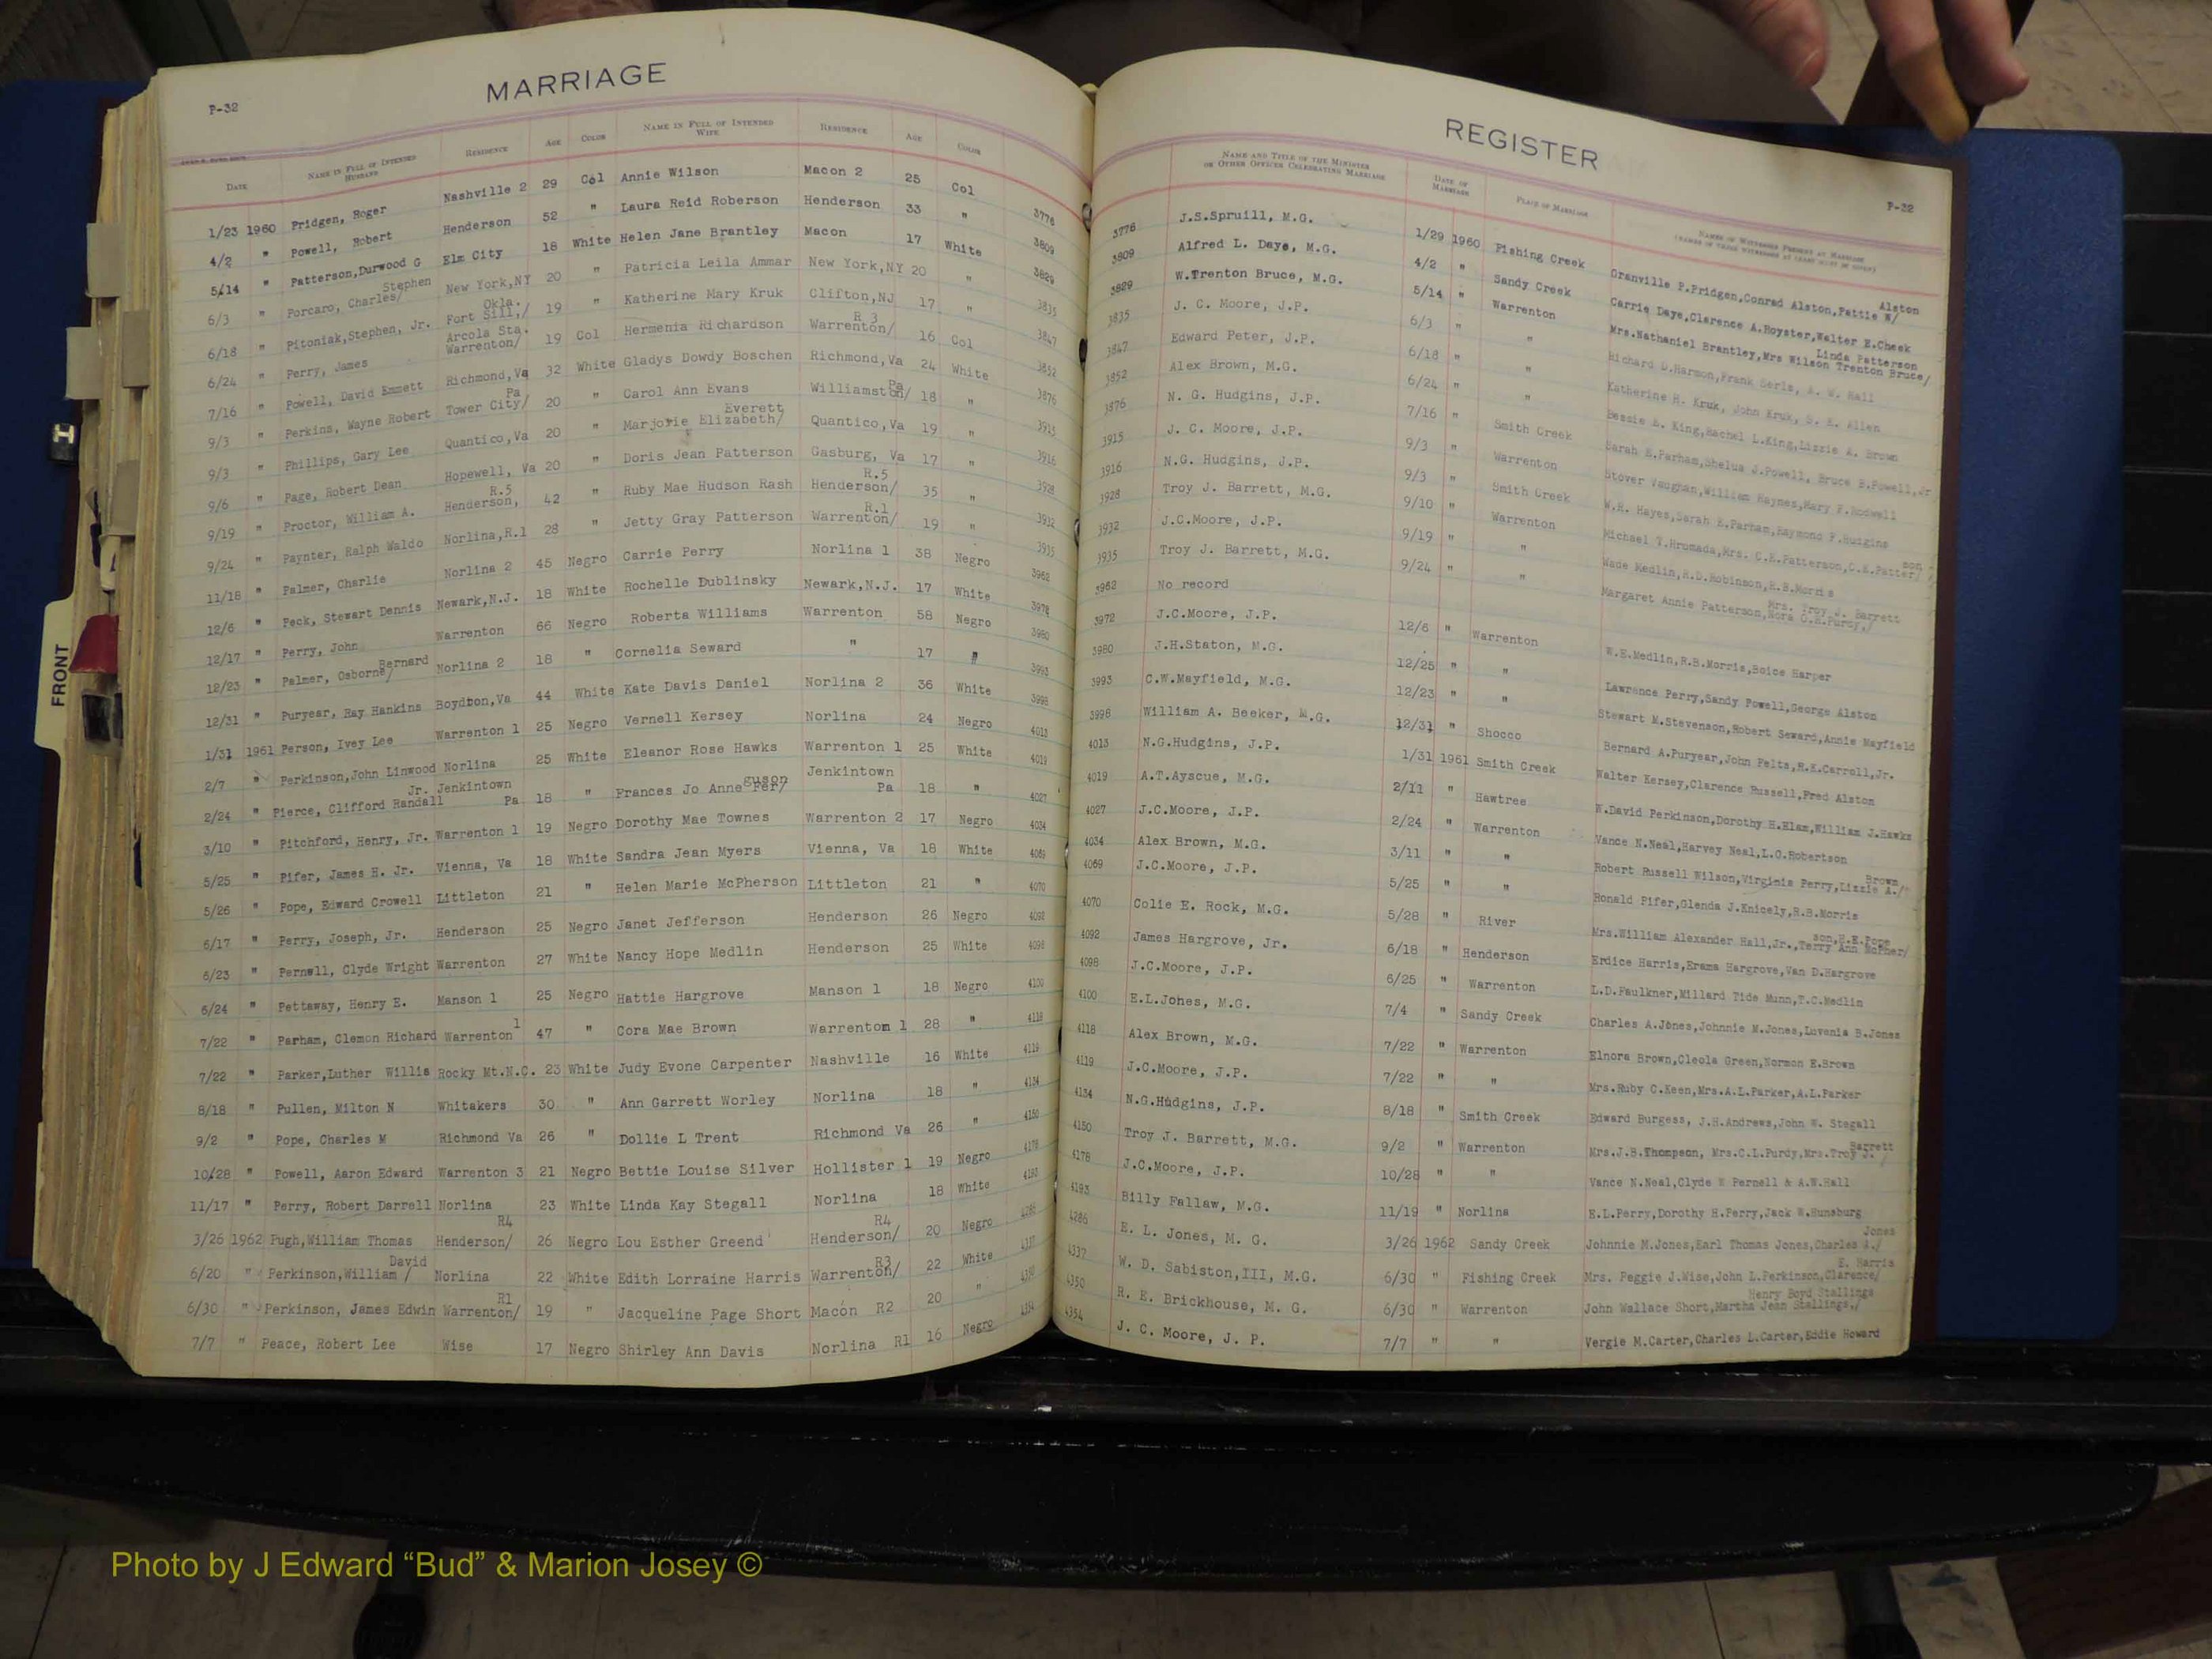 P-32
MARRIAGE
DATE NAME IN FULL OF INTENDED HUSBAND RESIDENCE AGE COLOR NAME IN FULL OF INTENDED WIFE RESIDENCE AGE COLOR
1/23 1960 Pridgen, Roger Nashville 2 29 Col Annie Wilson Macon 2 25 Col 3776
4/2 " Powell, Robert Henderson 52 " Laura Reid Roberson Henderson 33 " 3809
5/14 " Patterson,Durwood G Elm City 18 White Helen Jane Brantley Macon 17 White 3829
6/3 " Porcaro, Charles/ Stephen New York,NY 20 " Patricia Leila Ammar New York,NY 20 " 3835
6/18 " Pitoniak,Stephen, Jr. Fort Sill,/ Okla. 19 " Katherine Mary Kruk Clifton,NJ 17 " 3847
6/24 " Perry, James Arcola Sta. Warrenton/ 19 Col Hermenia Richardson Warrenton/ R 3 16 Col 3852
7/16 " Powell, David Emmett Richmond,Va 32 White Gladys Dowdy Boschen Richmond,Va 24 White 3876
9/3 " Perkins, Wayne Robert Tower City/ Pa 20 " Carol Ann Evans Williamston/ Pa 18 " 3915
9/3 " Phillips, Gary Lee Quantico,Va 20 " Marjorie Elizabeth/ Everett Quantico,Va 19 " 3916
9/6 " Page, Robert Dean Hopewell, Va 20 " Doris Jean Patterson Gasburg, Va 17 " 3928
9/19 " Proctor, William A. Henderson, R.5 42 " Ruby Mae Hudson Rash Henderson/ R.5 35 " 3932
9/24 " Paynter, Ralph Waldo Norlina,R.1 28 " Jetty Gray Patterson Warrenton/ R.1 19 " 3935
11/18 " Palmer, Charlie Norlina 2 45 Negro Carrie Perry Norlina 1 38 Negro 3962
12/6 " Peck, Stewart Dennis Newark,N.J. 18 White Rochelle Dublinsky Newark,N.J. 17 White 3972
12/17 " Perry, John Warrenton 66 Negro Roberta Williams Warrenton 58 Negro 3980
12/23 " Palmer, Osborne/ Bernard Norlina 2 18 " Cornelia Seward " 17 " 3993
12/31 " Puryear, Ray Hankins Boydton,Va 44 White Kate Davis Daniel Norlina 2 36 White 3998
1/31 1961 Person, Ivey Lee Warrenton 1 25 Negro Vernell Kersey Norlina 24 Negro 4013
2/7 " Perkinson,John Linwood Norlina 25 White Eleanor Rose Hawks Warrenton 1 25 White 4019
2/24 " Pierce, Clifford Randall Jr. Jenkintown Pa 18 " Frances Jo Anne Fer/ guson Jenkintown Pa 18 " 4027
3/10 " Pitchford, Henry, Jr. Warrenton 1 19 Negro Dorothy Mae Townes Warrenton 2 17 Negro 4034
5/25 " Pifer, James H. Jr. Vienna, Va 18 White Sandra Jean Myers Vienna, Va 18 White 4069
5/26 " Pope, Edward Crowell Littleton 21 " Helen Marie McPherson Littleton 21 " 4070
6/17 " Perry, Joseph, Jr. Henderson 25 Negro Janet Jefferson Henderson 26 Negro 4092
6/23 " Pernell, Clyde Wright Warrenton 27 White Nancy Hope Medlin Henderson 25 White 4098
6/24 " Pettaway, Henry E. Manson 1 25 Negro Hattie Hargrove Manson 1 18 Negro 4100
7/22 " Parham, Clemon Richard Warrenton 1 47 " Cora Mae Brown Warrenton 1 28 " 4118
7/22 " Parker,Luther Willis Rocky Mt.N.C. 23 White Judy Evone Carpenter Nashville 16 White 4119
8/18 " Pullen, Milton N Whitakers 30 " Ann Garrett Worley Norlina 18 " 4134
9/2 " Pope, Charles M Richmond Va 26 " Dollie L Trent Richmond Va 26 " 4150
10/28 " Powell, Aaron Edward Warrenton 3 21 Negro Bettie Louise Silver Hollister 1 19 Negro 4178
11/17 " Perry, Robert Darrell Norlina 23 White Linda Kay Stegall Norlina 18 White 4193
3/26 1962 Pugh,William Thomas Henderson/ R4 26 Negro Lou Esther Greend Henderson/ R4 20 Negro 4286
6/20 " Perkinson,William / David Norlina 22 White Edith Lorraine Harris Warrenton/ R3 22 White 4337
6/30 " Perkinson, James Edwin Warrenton/ R1 19 " Jacqueline Page Short Macon R2 20 " 4350
7/7 " Peace, Robert Lee Wise 17 Negro Shirley Ann Davis Norlina R1 16 Negro 4354
REGISTER
P-32
NAME AND TITLE OF THE MINISTER OR OTHER OFFICER CELEBRATING MARRIAGE DATE OF MARRIAGE PLACE OF MARRIAGE NAMES OF WITNESSES PRESENT AT MARRIAGE
3776 J.S.Spruill, M.G. 1/29 1960 Fishing Creek Granville P.Pridgen,Conrad Alston,Pattie W/ Alston
3809 Alfred L. Daye, M.G. 4/2 " Sandy Creek Carrie Daye,Clarence A.Royster,Walter E.Cheek
3829 W.Trenton Bruce, M.G. 5/14 " Warrenton Mrs.Nathaniel Brantley,Mrs Wilson Trenton Bruce/ Linda Patterson
3835 J. C. Moore, J.P. 6/3 " " Richard D.Harmon,Frank Seris, A. W. Hall
3847 Edward Peter, J.P. 6/18 " " Katherine H. Kruk, John Kruk, S. E. Allen
3852 Alex Brown, M.G. 6/24 " " Bessie E. King,Rachel L.King,Lizzie A. Brown
3876 N. G. Hudgins, J.P. 7/16 " Smith Creek Sarah E.Parham,Shelus J.Powell, Bruce B.Powell,Jr
3915 J. C. Moore, J.P. 9/3 " Warrenton Stover Vaughan,William Haynes,Mary F.Rodwell
3916 N.G. Hudgins, J.P. 9/3 " Smith Creek W.R. Hayes,Sarah E.Parham,Raymond F.Hudgins
3928 Troy J. Barrett, M.G. 9/10 " Warrenton Michael T.Hrumada,Mrs. C.E.Patterson,C.E.Patter/ son
3932 J.C.Moore, J.P. 9/19 " " Wade Medlin,R.D.Robinson,R.B.Morris
3935 Troy J. Barrett, M.G. 9/24 " " Margaret Annie Patterson,Nora C.H.Purdy,/ Mrs. Troy J. Barrett
3962 No record
3972 J.C.Moore, J.P. 12/6 " Warrenton W.E.Medlin,R.B.Morris,Boice Harper
3980 J.H.Staton, M.G. 12/25 " " Lawrence Perry,Sandy Powell,George Alston
3993 C.W.Mayfield, M.G. 12/23 " " Stewart M.Stevenson,Robert Seward,Annie Mayfield
3998 William A. Beeker, M.G. 12/31 " Shocco Bernard A.Puryear,John Pelts,R.K.Carroll,Jr.
4013 N.G.Hudgins, J.P. 1/31 1961 Smith Creek Walter Kersey,Clarence Russell,Fred Alston
4019 A.T.Ayscue, M.G. 2/11 " Hawtree W.David Perkinson,Dorothy H.Elam,William J.Hawks
4027 J.C.Moore, J.P. 2/24 " Warrenton Vance N.Neal,Harvey Neal,L.C.Robertson
4034 Alex Brown, M.G. 3/11 " " Robert Russell Wilson,Virginia Perry,Lizzie A./ Brown
4069 J.C.Moore, J.P. 5/25 " " Ronald Pifer,Glenda J.Knicely,R.B.Morris
4070 Colie E. Rock, M.G. 5/28 " River Mrs.William Alexander Hall,Jr.,Terry Ann McPher/ son,H.E.Pope
4092 James Hargrove, Jr. 6/18 " Henderson Erdice Harris,Erama Hargrove,Van D.Hargrove
4098 J.C.Moore, J.P. 6/25 " Warrenton L.D.Faulkner,Millard Tide Munn,T.C.Medlin
4100 E.L.Jones, M.G. 7/4 " Sandy Creek Charles A.Jones,Johnnie M.Jones,Luvenia B.Jones
4118 Alex Brown, M.G. 7/22 " Warrenton Elnora Brown,Cleola Green,Norman E.Brown
4119 J.C.Moore, J.P. 7/22 " " Mrs.Ruby C.Keen,Mrs.A.L.Parker,A.L.Parker
4134 N.G.Hudgins, J.P. 8/18 " Smith Creek Edward Burgess, J.H.Andrews,John W. Stegall
4150 Troy J. Barrett, M.G. 9/2 " Warrenton Mrs.J.B.Thompson, Mrs.C.L.Purdy,Mrs.Troy J. / Barrett
4178 J.C.Moore, J.P. 10/28 " " Vance N.Neal,Clyde W Pernell & A.W.Hall
4193 Billy Fallaw, M.G. 11/19 " Norlina E.L.Perry,Dorothy H.Perry,Jack W.Hunsburg
4286 E. L. Jones, M. G. 3/26 1962 Sandy Creek Johnnie M.Jones,Earl Thomas Jones,Charles A./ Jones
4337 W. D. Sabiston,III, M.G. 6/30 " Fishing Creek Mrs. Peggie J.Wise,John L.Perkinson,Clarence/ E. Harris
4350 R. E. Brickhouse, M. G. 6/30 " Warrenton John Wallace Short,Martha Jean Stallings,/ Henry Boyd Stallings
4354 J. C. Moore, J. P. 7/7 " " Vergie M.Carter,Charles L.Carter,Eddie Howard
FRONT
Photo by J Edward “Bud” & Marion Josey ©